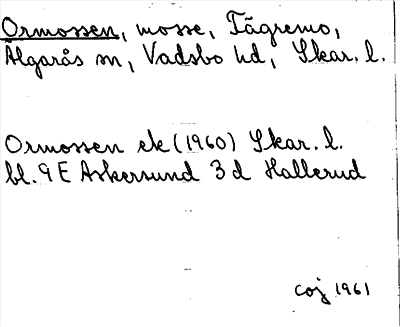 Ormossen, mosse, Fägremo,
Älgarås sn, Vadsbo hd, Skar. l.
Ormossen ek (1960) Skar. l.
bl. 9 E Askersund 3 d Hallerud
coj 1961